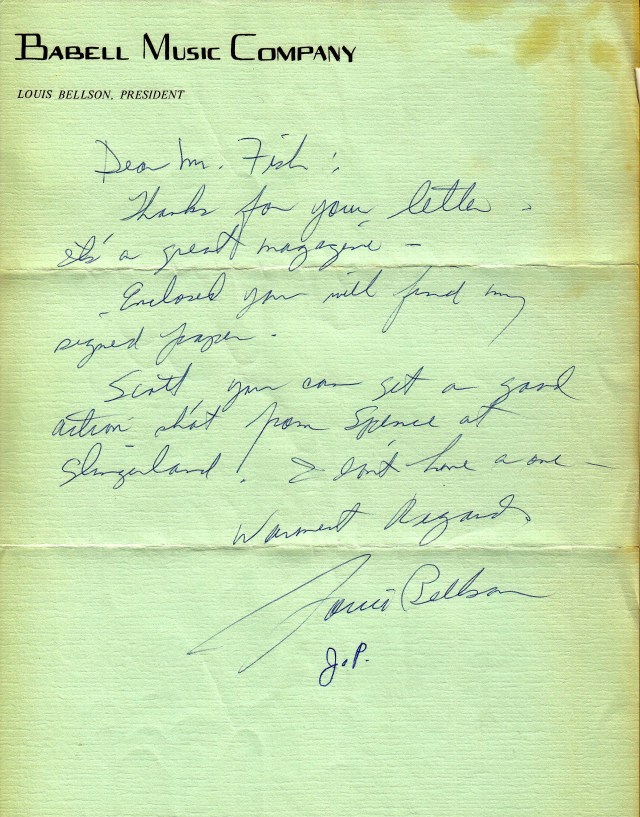 BABELL MUSIC COMPANY
LOUIS BELLSON, PRESIDENT
Dear Mr. Fish:
Thanks for your letter.
It's a great magazine –
Enclosed you will find my
signed paper.
Scott you can get a good
action shot from Spence at
Slingerland! I don't have a one –
Warmest Regards,
Louie Bellson
J.P.